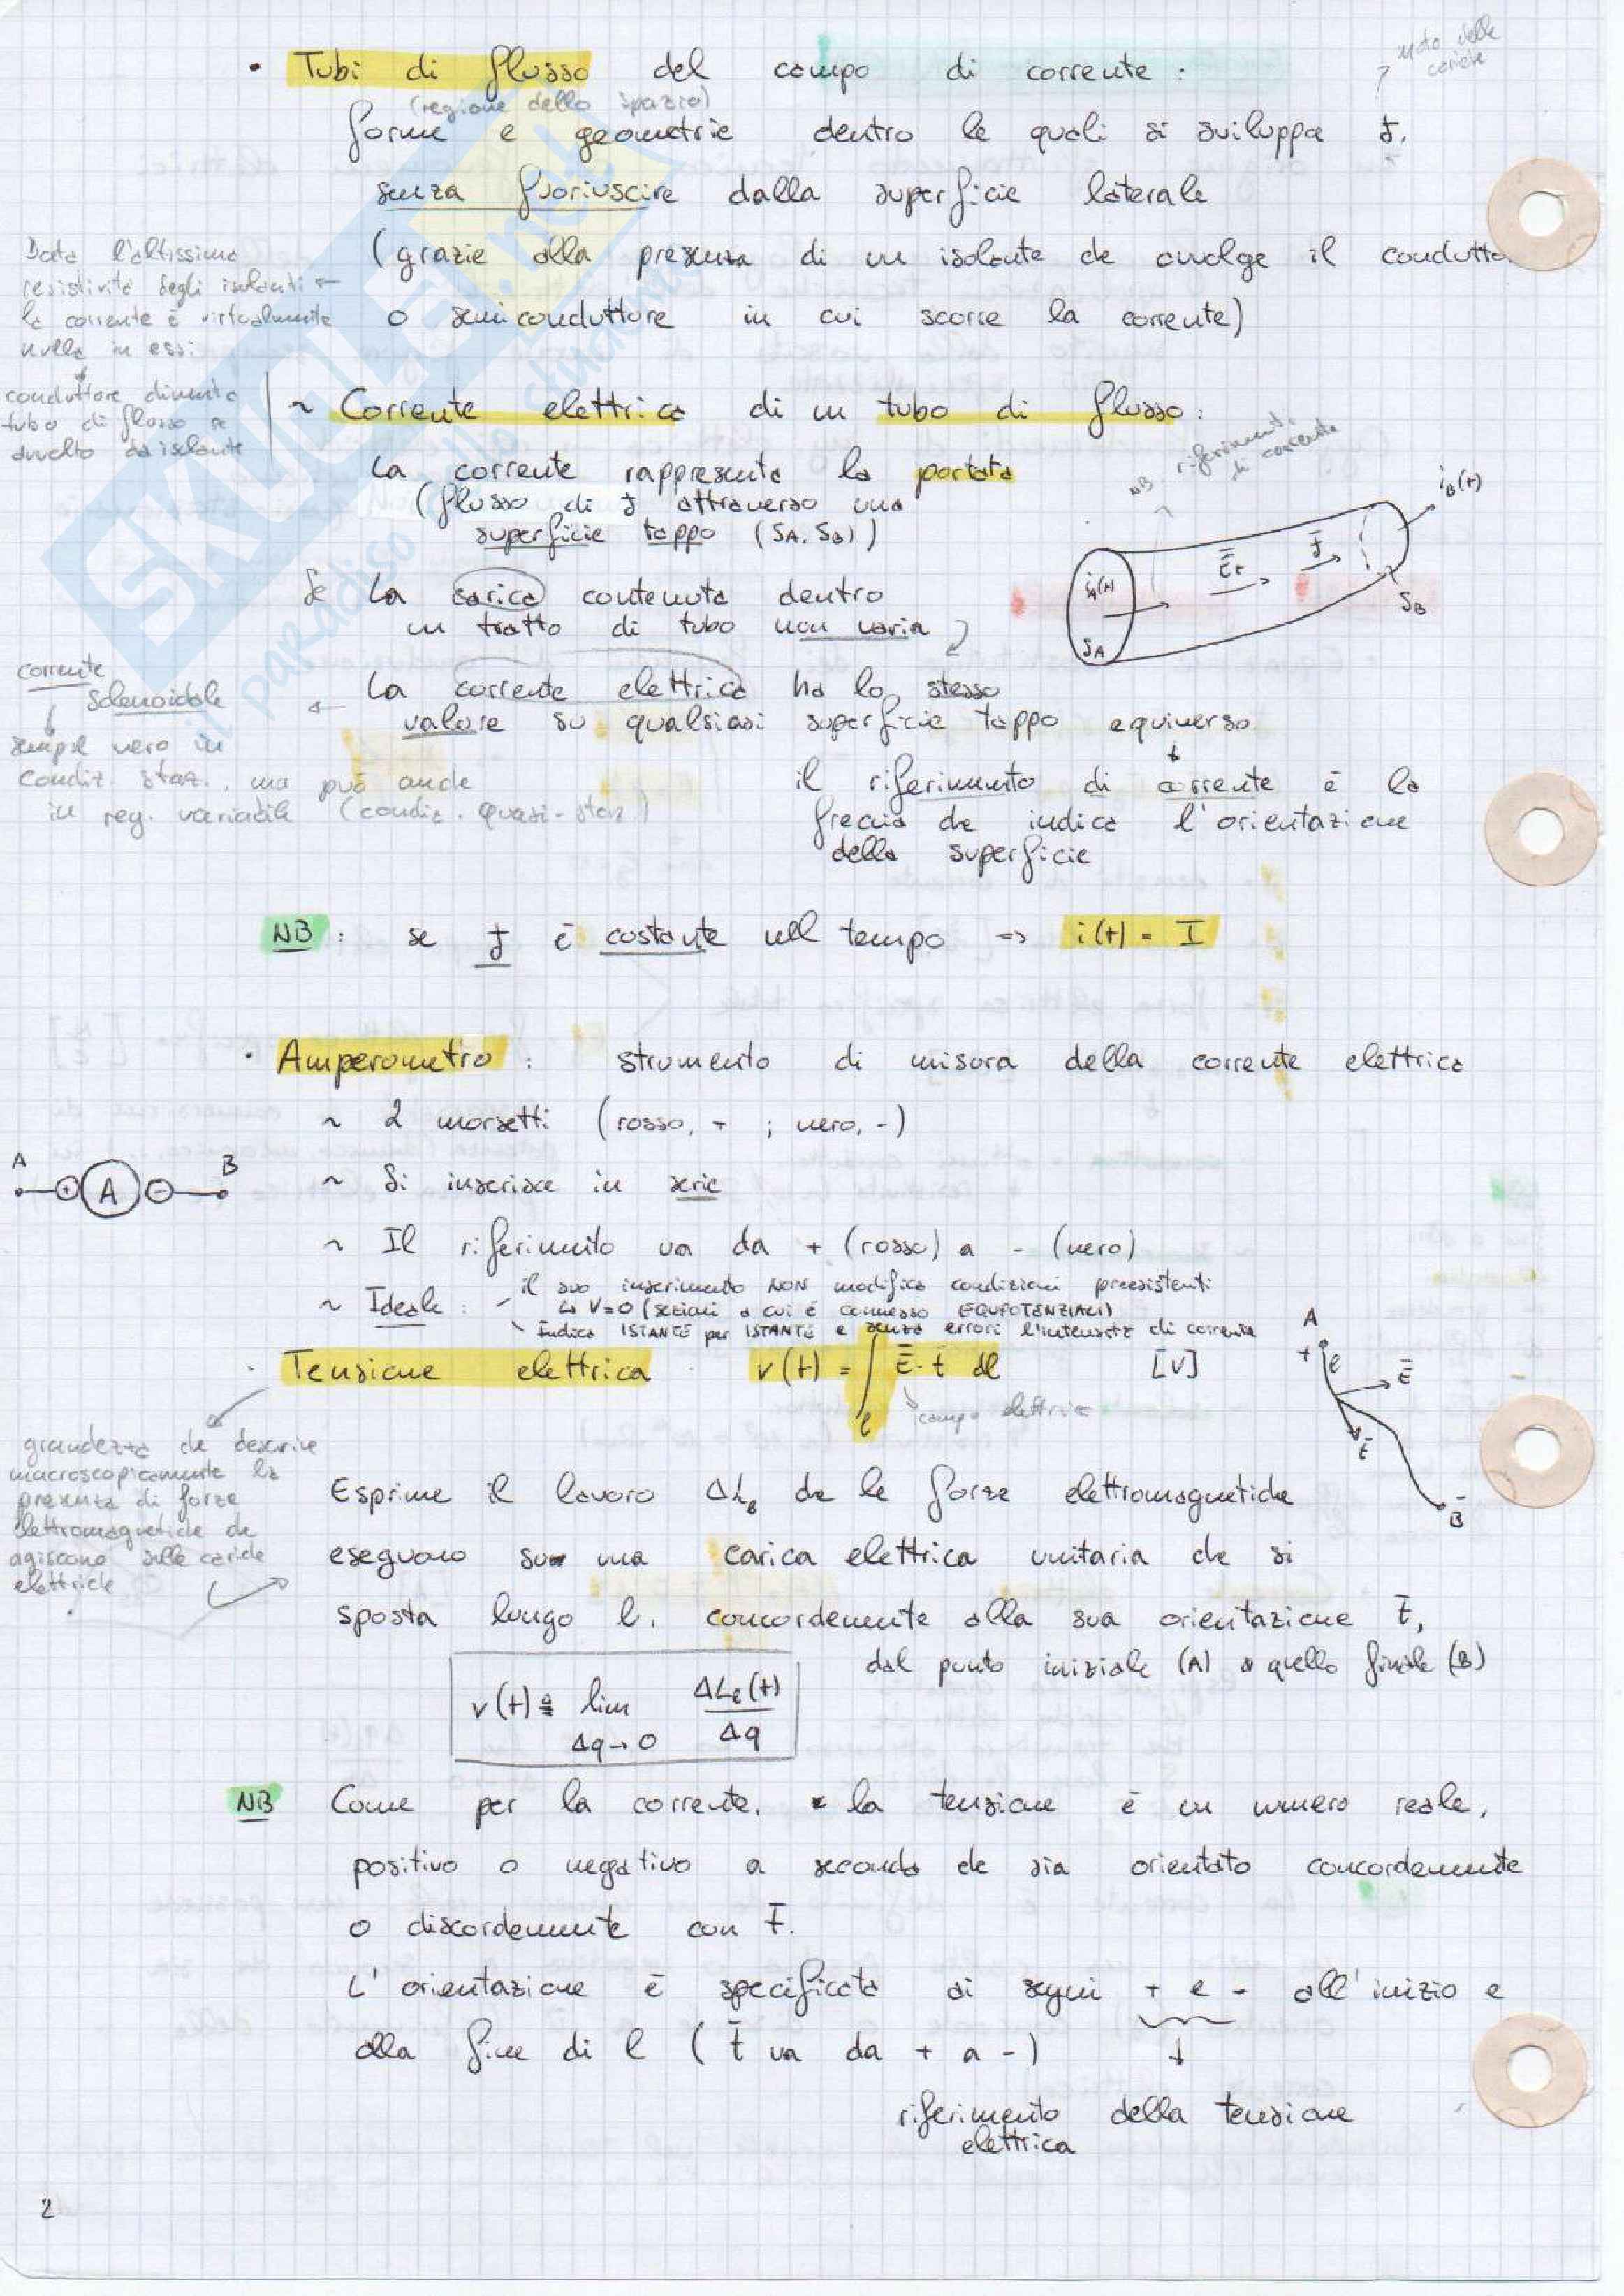 moto delle
cariche
• Tubi di flusso del campo di corrente :
(regione dello spazio)
forme e geometrie dentro le quali si sviluppa J,
senza fuoriuscire dalla superficie laterale
(grazie alla presenza di un isolante che avvolge il condutto
o semiconduttore in cui scorre la corrente)
Data l'altissima
resistività degli isolanti ←
la corrente è virtualmente
nulla in essi
↓
conduttore diventa
tubo di flusso se
avvolto da isolante
~ Corrente elettrica di un tubo di flusso :
La corrente rappresenta la portata
(flusso di J attraverso una
superficie tappo (SA, SB))
NB riferimenti
di corrente
iB(t)
iA(t)
Ēt
J̄
SA
SB
Se La carica contenuta dentro
un tratto di tubo non varia
La corrente elettrica ha lo stesso
valore su qualsiasi superficie tappo equiverso
corrente
solenoidale
↓
sempre vero in
condiz. staz., ma può anche
in reg. variabile (condiz. quasi-staz)
↓
il riferimento di corrente è la
freccia che indica l'orientazione
della superficie
NB : se J è costante nel tempo => i(t) = I
• Amperometro : strumento di misura della corrente elettrica
~ 2 morsetti (rosso, + ; nero, -)
A B
+ A -
~ Si inserisce in serie
~ Il riferimento va da + (rosso) a - (nero)
~ Ideale : - il suo inserimento NON modifica condizioni preesistenti
↳ V=0 (sezioni a cui è connesso EQUIPOTENZIALI)
\ Indica ISTANTE per ISTANTE e senza errori l'intensità di corrente
· Tensione elettrica v(t) = ∫ℓ Ē · t̄ dℓ [V]
campo elettrico
A
+
ℓ
Ē
t̄
-
B
grandezza che descrive
macroscopicamente la
presenza di forze
elettromagnetiche che
agiscono sulle cariche
elettriche
Esprime il lavoro ΔLe che le forze elettromagnetiche
eseguono su una carica elettrica unitaria che si
sposta lungo l, concordemente alla sua orientazione t̄,
dal punto iniziale (A) a quello finale (B)
v(t) ≜ lim ΔLe(t)
Δq→0 Δq
NB Come per la corrente, la tensione è un numero reale,
positivo o negativo a seconda che sia orientato concordemente
o discordemente con t̄.
L'orientazione è specificata di segni + e - all'inizio e
alla fine di l ( t̄ va da + a -)
↓
riferimento della tensione
elettrica
2
SKUOLA.net
il paradiso dello studente